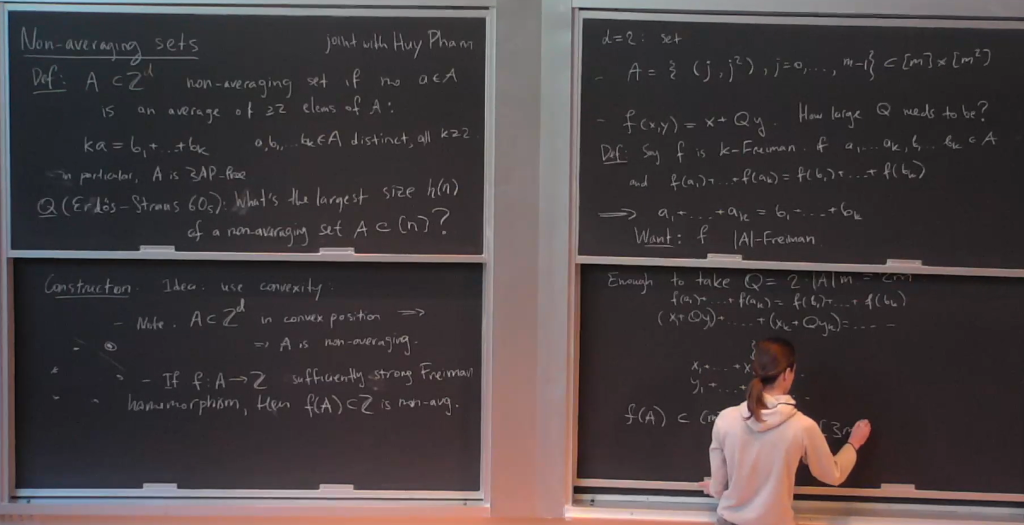 Non-averaging sets
joint with Huy Pham
Def: A ⊂ ℤ^d non-averaging set if no a∈A
is an average of ≥2 elems of A:
ka = b₁+...+bₖ a, b₁,... bₖ∈A distinct, all k≥2.
in particular, A is 3AP-free
Q (Erdős-Straus 60s): What's the largest size h(n)
of a non-averaging set A ⊂ [n]?
Construction. Idea: use convexity.
- Note. A⊂ℤ^d in convex position ⟹
⟹ A is non-averaging.
- If f: A→ℤ sufficiently strong Freiman
homomorphism, then f(A)⊂ℤ is non-avg.
d=2: set
- A = { (j, j²), j=0,..., m-1} ⊂ [m]×[m²]
- f(x,y) = x+Qy. How large Q needs to be?
Def: Say f is k-Freiman if a₁,... aₖ, b₁... bₖ ∈ A
and f(a₁)+...+f(aₖ) = f(b₁)+...+f(bₖ)
⟹ a₁+...+aₖ = b₁...+bₖ
Want: f |A|-Freiman
Enough to take Q = 2·|A|m = 2m
f(a₁)+...+f(aₖ) = f(b₁)+...+f(bₖ)
(x₁+Qy₁)+....+(xₖ+Qyₖ)=....
x₁+...+x
y₁+...
f(A) ⊂ [3m